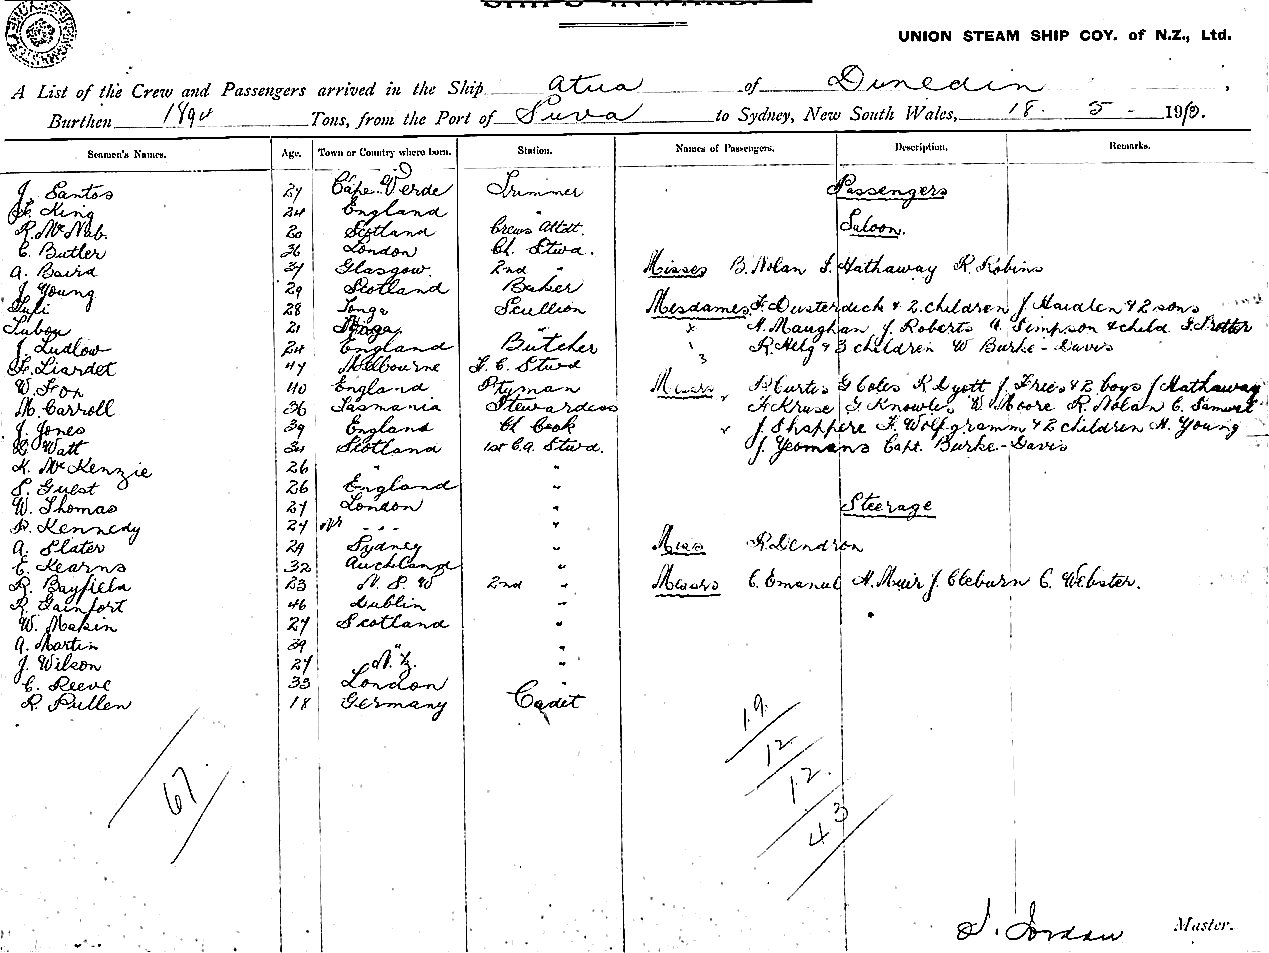 SHIPS INWARD.
UNION STEAM SHIP COY. of N.Z., Ltd.
A List of the Crew and Passengers arrived in the Ship Atua of Dunedin,
Burthen 1894 Tons, from the Port of Suva to Sydney, New South Wales, 18. 5 - 191
Seamen's Names. Age. Town or Country where born. Station. Names of Passengers. Description. Remarks.
J. Santos 27 Cape Verde Trimmer
F. King 24 England "
R. McNab. 20 Scotland Crews Attdt.
C. Butler 36 London Ch. Stwd.
A. Baird 34 Glasgow. 2nd "
J. Young 29 Scotland Baker
Tuli 28 Tonga Scullion
Tubou 21 Tonga "
J. Ludlow 24 England Butcher
F. Liardet 47 Melbourne F. C. Stwd
W. Fox 40 England Ptyman
M. Carroll 36 Tasmania Stewardess
J. Jones 39 England Ch. Cook
Watt 34 Scotland 1st C.A. Stwd.
K. McKenzie 26 " "
S. Guest 26 England "
W. Thomas 27 London "
P. Kennedy 24 " "
A. Slater 29 Sydney "
E. Kearns 32 Auckland "
R. Bayfield 23 N. S. W 2nd "
R. Gainfort 46 Dublin "
W. Makin 27 Scotland "
A. Martin 39 " "
J. Wilson 27 N.Z. "
C. Reeve 33 London "
R. Pullen 18 Germany Cadet
67
Passengers
Saloon.
Misses B. Nolan I. Hathaway R. Robins
Mesdames F. Dusterdick & 2 children J Haiden & 2 sons
H. Maughan J. Roberts A. Simpson & child I. Trotter
R. Helg & 3 children W Burke-Davis
Messrs P. Curtis G Coles R Dyott J. Fries & 2 boys J Hathaway
H Kruse G Knowles W Moore R. Nolan C. Samuel
J. Shappere F. Wolfgramm & 2 children H. Young
J. Yeomans Capt. Burke-Davis
Steerage
Miss R. Dendron
Messrs C. Emanuel H. Muir J. Cleburn C. Webster.
19
12
12.
43
J. Jordan Master.